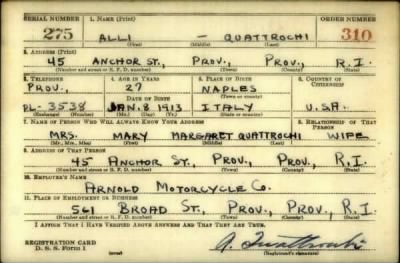 SERIAL NUMBER 1. NAME (Print) ORDER NUMBER
275 ALLI — QUATTROCHI 310
(First) (Middle) (Last)
2. ADDRESS (Print)
45 ANCHOR ST., PROV., PROV., R.I.
(Number and street or R. F. D. number) (Town) (County) (State)
3. TELEPHONE 4. AGE IN YEARS 5. PLACE OF BIRTH 6. COUNTRY OF CITIZENSHIP
PROV., 27 NAPLES
DATE OF BIRTH (Town or county)
PL-3538 JAN. 8 1913 ITALY U.S.A.
(Exchange) (Number) (Mo.) (Day) (Yr.) (State or country)
7. NAME OF PERSON WHO WILL ALWAYS KNOW YOUR ADDRESS 8. RELATIONSHIP OF THAT PERSON
MRS. MARY MARGARET QUATTROCHI WIFE
(Mr., Mrs., Miss) (First) (Middle) (Last)
9. ADDRESS OF THAT PERSON
45 ANCHOR ST., PROV., PROV., R.I.
(Number and street or R. F. D. number) (Town) (County) (State)
10. EMPLOYER'S NAME
ARNOLD MOTORCYCLE CO.
11. PLACE OF EMPLOYMENT OR BUSINESS
561 BROAD ST., PROV., PROV., R.I.
(Number and street or R. F. D. number) (Town) (County) (State)
I AFFIRM THAT I HAVE VERIFIED ABOVE ANSWERS AND THAT THEY ARE TRUE.
REGISTRATION CARD
D. S. S. Form 1 (over) (Registrant's signature)
A. Quattrochi